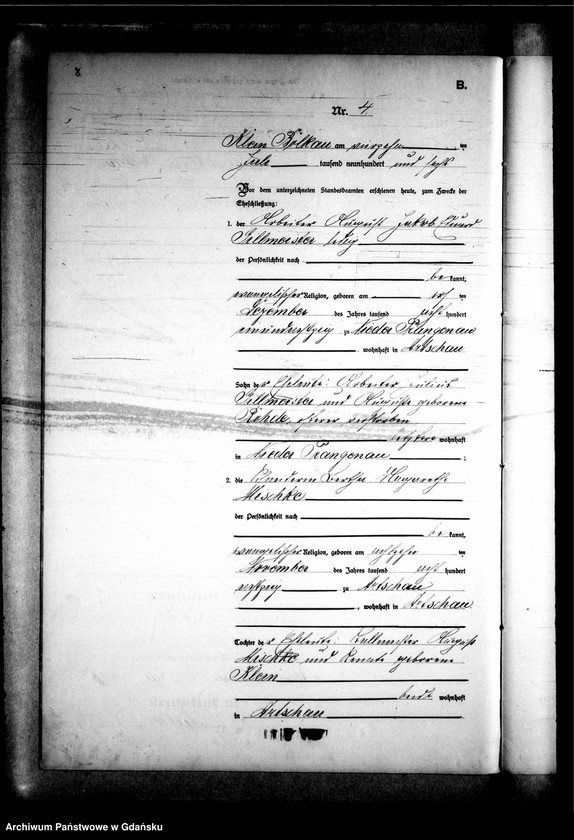 B.
Nr. 4.
Klein Bölkau am vierzehn ten
Juli tausend neunhundert und sechs
Vor dem unterzeichneten Standesbeamten erschienen heute, zum Zwecke der
Eheschließung:
1. der Arbeiter August Jakob Eduard
ledig
der Persönlichkeit nach
be kannt,
evangelischer Religion, geboren am ten
Dezember des Jahres tausend acht hundert
zu Nieder Prangenau
, wohnhaft in Artschau
Sohn der Eheleute: Arbeiter
und Auguste geborene
Rohde, verstorben
letztere wohnhaft
in Nieder Prangenau ;
2. die Bertha
Mischke
der Persönlichkeit nach
be kannt,
evangelischer Religion, geboren am achtzehn ten
November des Jahres tausend acht hundert
zu Artschau
, wohnhaft in Artschau
Tochter der Eheleute: August
Mischke und Renate geborene
Klein
beide wohnhaft
in Artschau
Archiwum Państwowe w Gdańsku